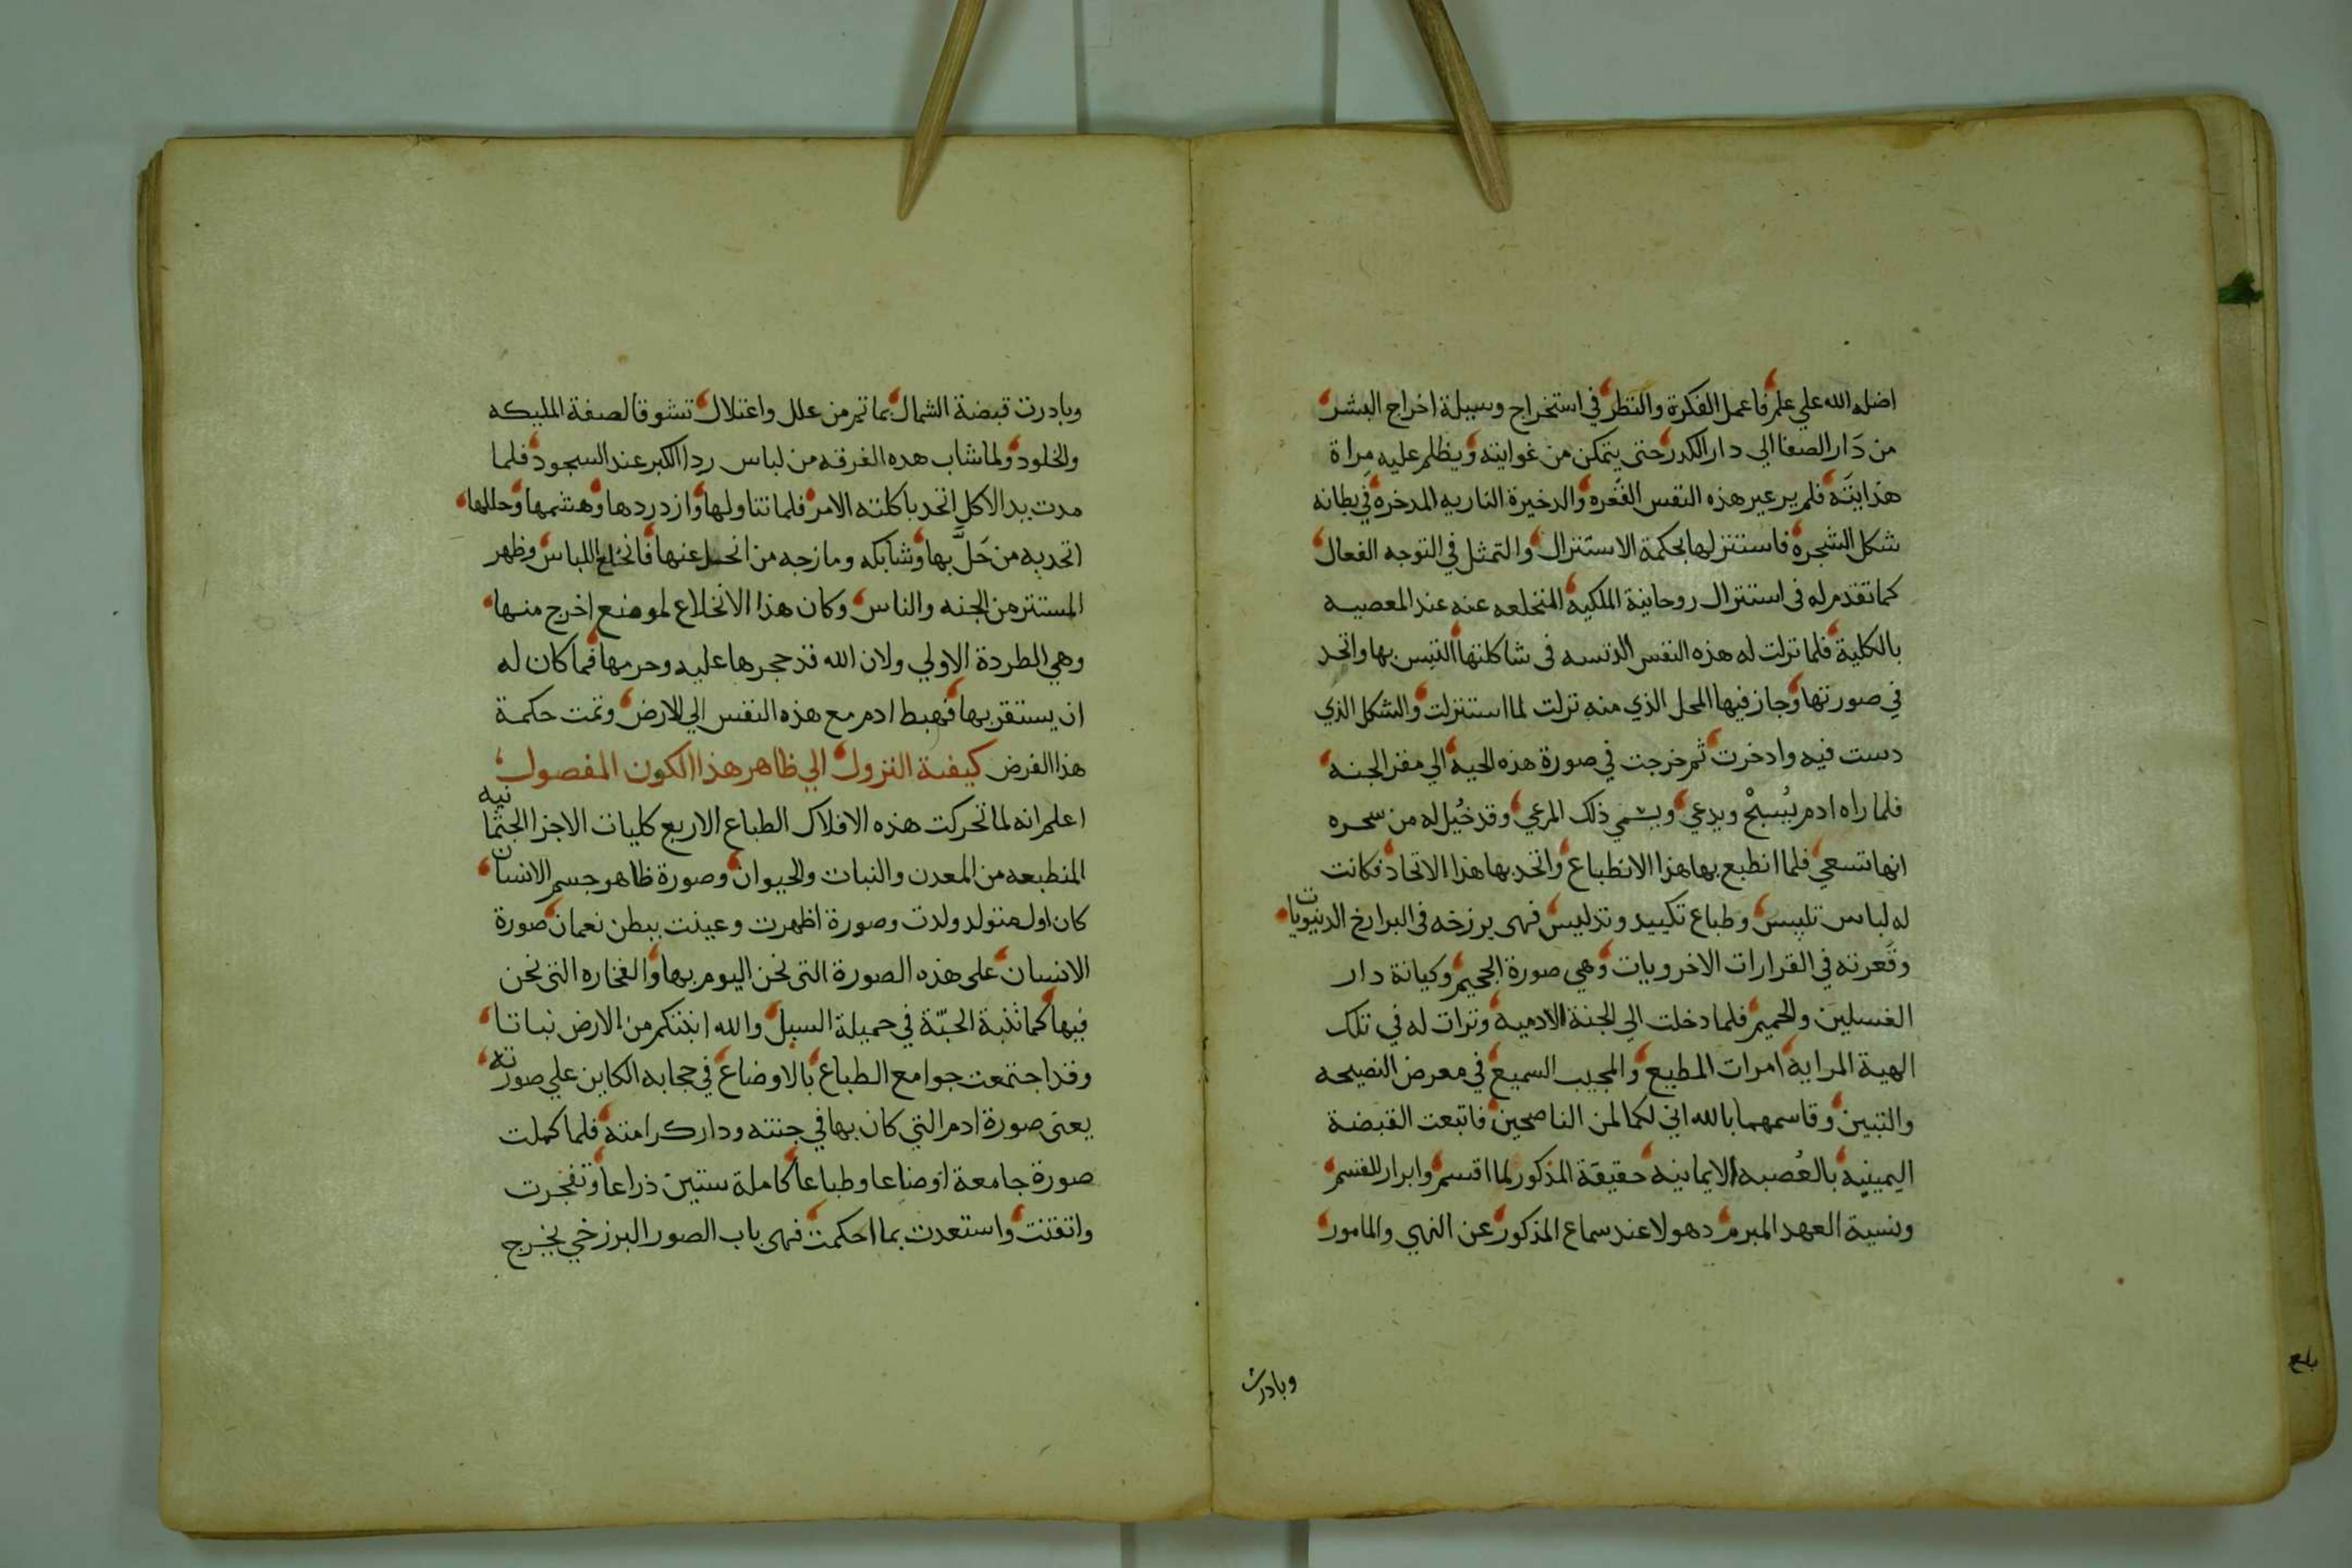 اضله الله علي علم فاعمل الفكرة والنظر في استخراج وسيلة اخراج البشر
من دَار الصفا الي دار الكدر حتى يتمكن من غوايته ويظلم عليه مراة
هدايته فلم ير غير هذه النفس القعره والدخيرة الناريه المدخره في بطانه
شكل الشجره فاستنزلها بحكمة الاستنزال والتمثل في التوجه الفعال
كما تقدم له فى استنزال روحانية الملكيه المنخلعه عنه عند المعصيه
بالكلية فلما نزلت له هذه النفس الدنسه فى شاكلتها التبس بها واتحد
في صورتها وجاز فيها المحل الذي منه نزلت لما استنزلت والشكل الذي
دست فيه وادخرت ثم خرجت في صورة هذه الحيه الي مقر الجنه
فلما راه ادم يُسبحْ ويدعي ويشمي ذلك المرعي وقد خُيل له من سحره
انها تسعي فلما انطبع بها هذا الانطباع واتحد بها هذا الاتحاد فكانت
له لباس تلبيس وطباع تكييد وتدليس فهى برزخه فى البرازخ الدنيويات
وقعرته في القرارات الاخرويات وهي صورة الجحيم وكيانة دار
الغسلين والحميم فلما دخلت الي الجنة الادميه ونزات له في تلك
الهية المرايه امرات المطيع والمجيب السميع في معرض النصيحه
والتبين وقاسمهما بالله اني لكما لمن الناصحين فاتبعت القبضة
اليمينيه بالعُصبه الايمانيه حقيقة المذكور لما اقسم وابرار للقسم
ونسية العهد المبرم دهولا عند سماع المذكور عن النهي والمامور
وبادرت
وبادرت قبضة الشمال بما تم من علل واعتلال تشوقا لصفة المليكه
والخلود ولما شاب هده الغرقه من لباس ردا الكبر عند السجود فلما
مدت يد الاكل اتحد باكلته الامر فلما تناولها وازدردها وهشمها وحللها
اتحد به من حَلَّ بها وشابكه ومازجه من انحل عنها فانخلع اللباس وظهر
المستتر من الجنه والناس وكان هذا الانخلاع لموضع اخرج منها
وهي الطردة الاولي ولان الله قد حجرها عليه وحرمها فما كان له
ان يستقر بها فهبط ادم مع هذه النفس الي الارض وتمت حكمة
هذا الفرض كيفية النزول الي ظاهر هذا الكون المفصول
اعلم انه لما تحركت هذه الافلاك الطباع الاربع كليات الاجزا الجثمانيه
المنطبعه من المعدن والنبات والحيوان وصورة ظاهر جسم الانسان
كان اول متولد ولدت وصورة اظهرت وعينت ببطن نعمان صورة
الانسان على هذه الصورة التى نحن اليوم بها والفخاره التى نحن
فيها كما تنبة الحبّة في حميلة السيل والله انبتكم من الارض نباتا
وقد اجتمعت جوامع الطباع بالاوضاع في حجابه الكاين علي صورته
يعنى صورة ادم التي كان بها في جنته ودار كرامته فلما كملت
صورة جامعة اوضاعا وطباعا كاملة ستين ذراعا وتفجرت
واتقنت واستعدت بما احكمت فهى باب الصور البرزخي يخرج